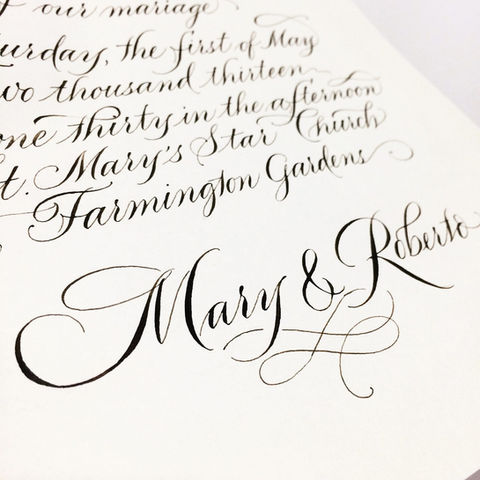 of our mariage
turday, the first of May
two thousand thirteen
one thirty in the afternoon
St. Mary's Star Church
Farmington Gardens
Mary & Roberto